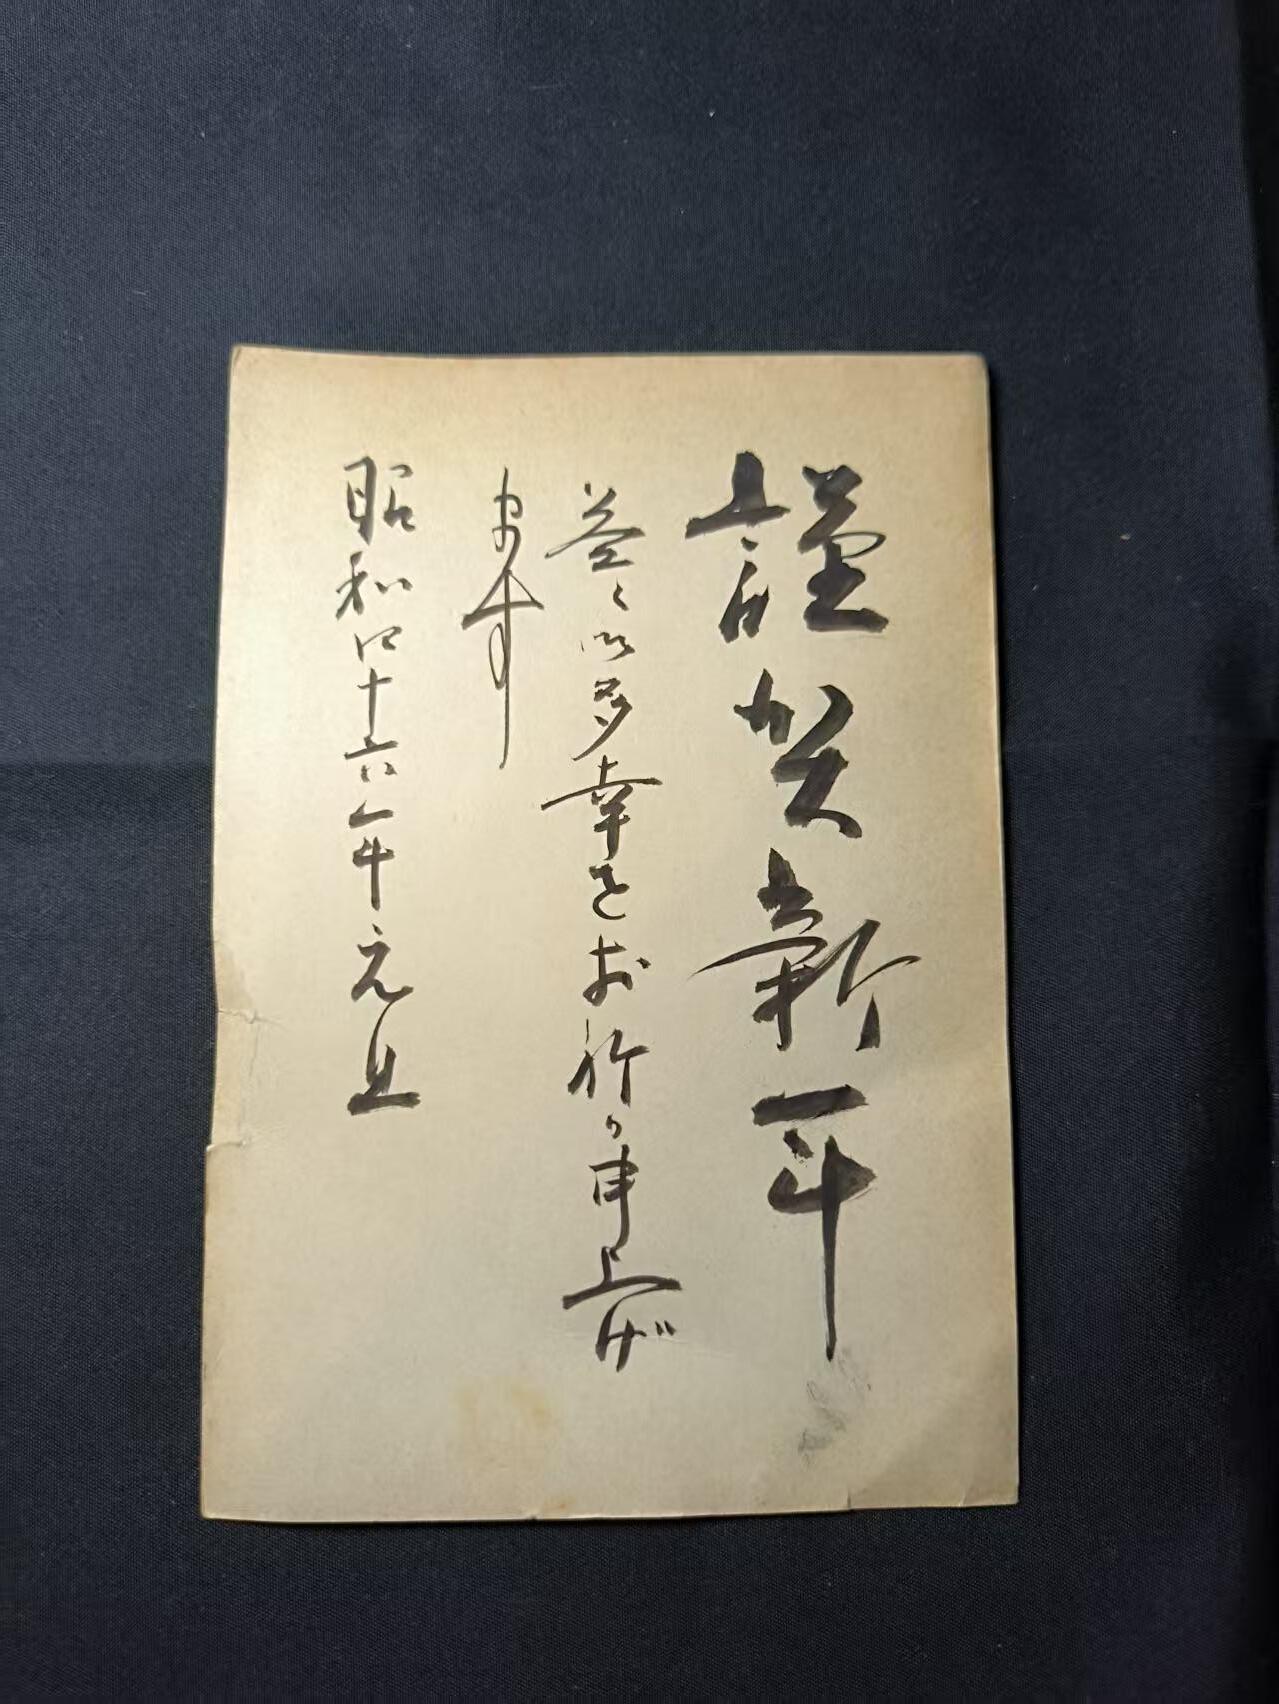 謹賀新年
益々御多幸をお祈り申上げ
ます
昭和四十六年元旦